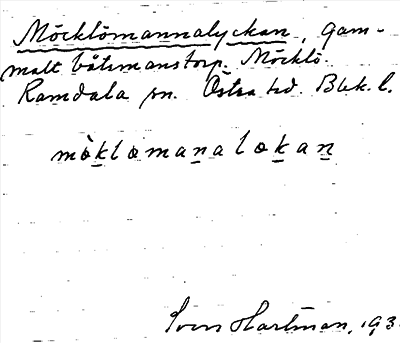 Möcklömannalyckan, gam-
malt båtsmanstorp. Möcklö.
Ramdala sn. Östra hd. Blek. l.
mòklomanalokan
Sven Hartman, 193